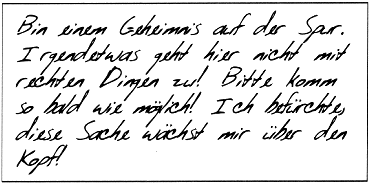 Bin einem Geheimnis auf der Spur.
Irgendetwas geht hier nicht mit
rechten Dingen zu! Bitte komm
so bald wie möglich! Ich befürchte,
diese Sache wächst mir über den
Kopf!